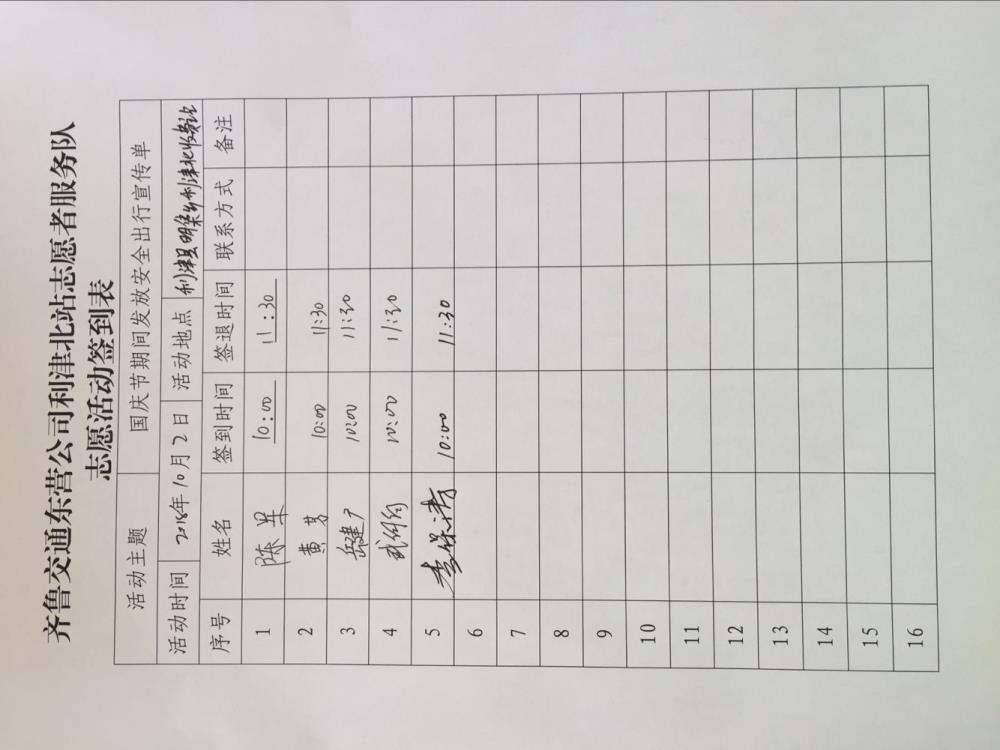 齐鲁交通东营公司利津北站志愿者服务队
志愿活动签到表
活动主题 国庆节期间发放安全出行宣传单
活动时间 2018年10月2日 活动地点 利津县明集乡利津北收费站
序号 姓名 签到时间 签退时间 联系方式 备注
1 陈军 10:00 11:30
2 黄芳 10:00 11:30
3 岳建广 10:00 11:30
4 10:00 11:30
5 李保涛 10:00 11:30
6
7
8
9
10
11
12
13
14
15
16